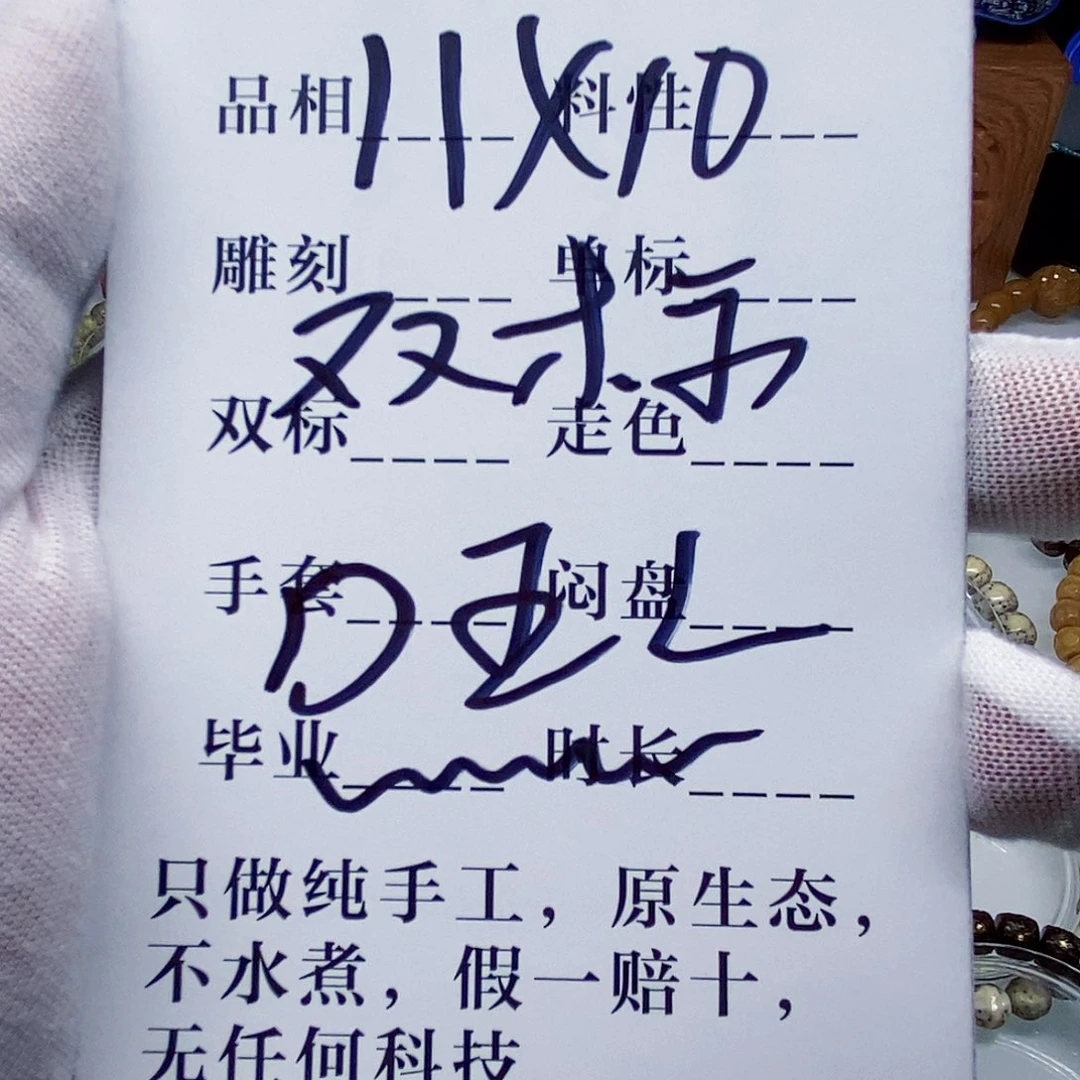 品相____ 料性____
11X10
雕刻____ 单标____
双标
双标____ 走色____
手套____ 闷盘____
毕业____ 时长____
只做纯手工，原生态，
不水煮，假一赔十，
无任何科技